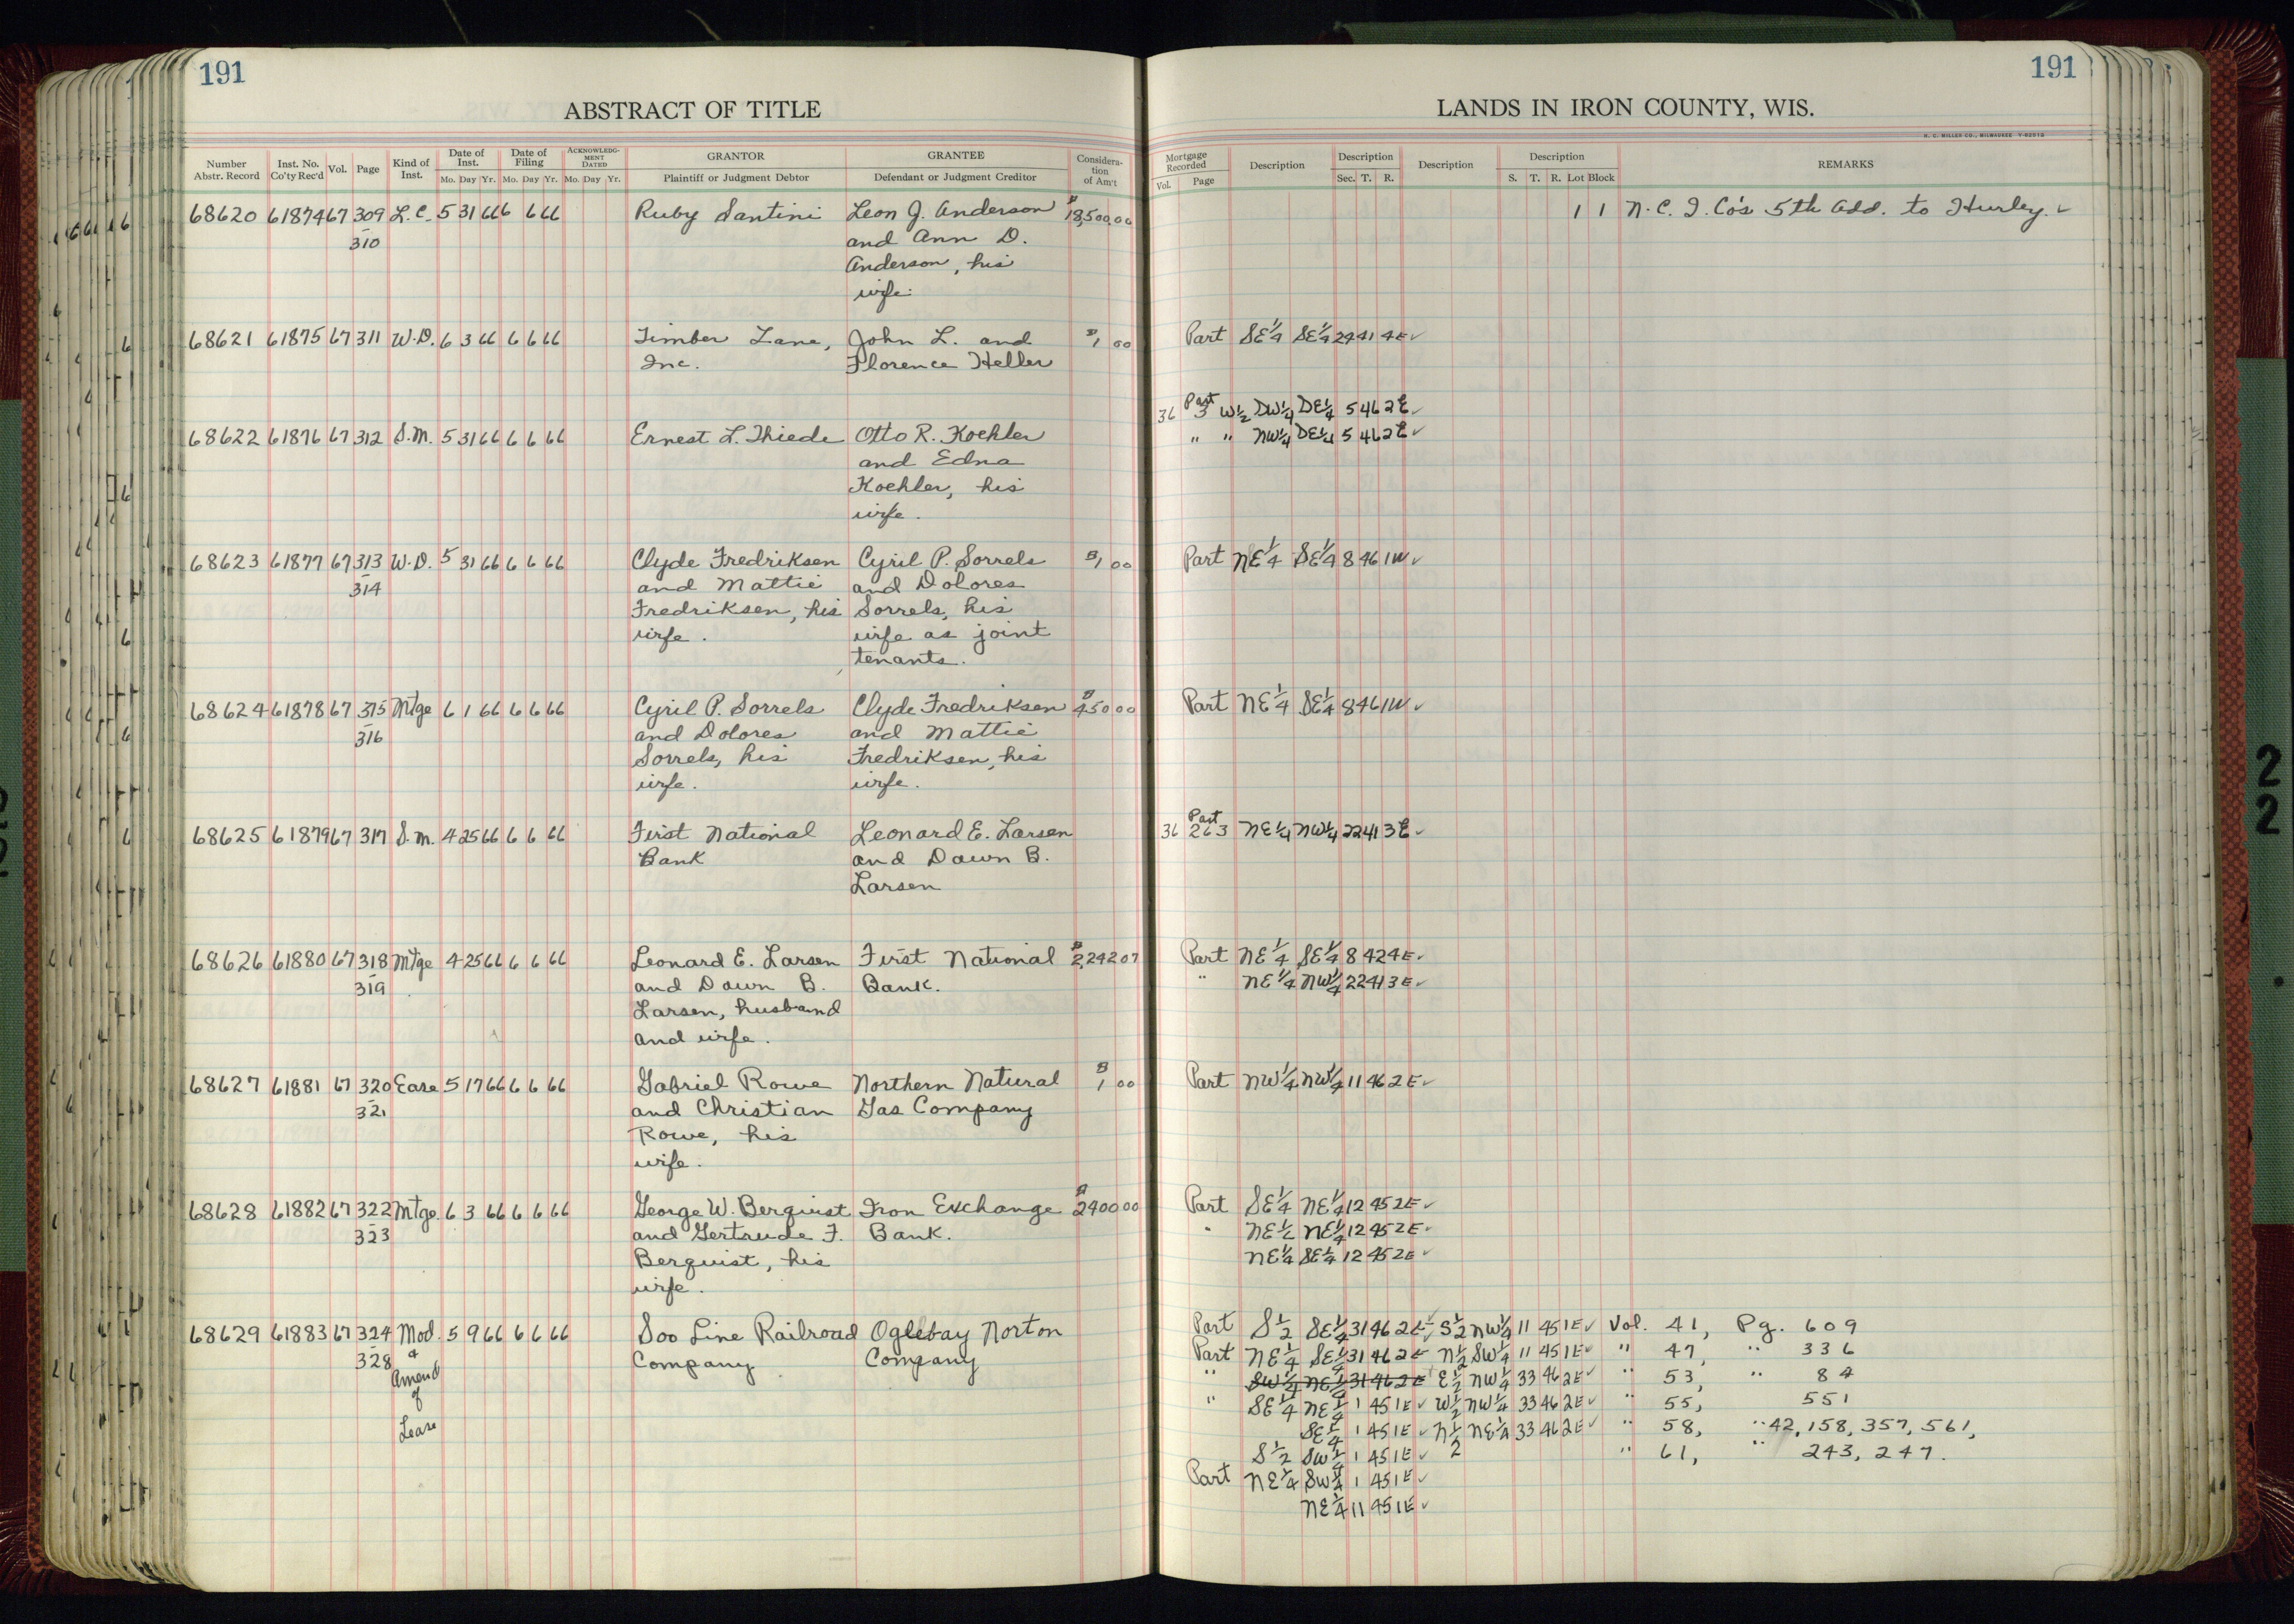 191
191
ABSTRACT OF TITLE
LANDS IN IRON COUNTY, WIS.
H. C. MILLER CO., MILWAUKEE
Number Abstr. Record
Inst. No. Co'ty Rec'd
Vol.
Page
Kind of Inst.
Date of Inst.
Mo. Day Yr.
Date of Filing
Mo. Day Yr.
ACKNOWLEDGMENT DATED
Mo. Day Yr.
GRANTOR
Plaintiff or Judgment Debtor
GRANTEE
Defendant or Judgment Creditor
Consideration of Am't
Mortgage Recorded
Vol. Page
Description
Description
Sec. T. R.
Description
Description
S. T. R. Lot Block
REMARKS
68620 61874 67 309 L.C. 5 31 66 6 6 66 Ruby Santini Leon J. Anderson $18,500.00 1 1 N.C.I. Co's 5th Add. to Hurley. ✓
310 and Ann D.
Anderson, his
wife.
68621 61875 67 311 W.D. 6 3 66 6 6 66 Timber Lane, John L. and $1 00 Part SE1/4 SE1/4 24 41 4E ✓
Inc. Florence Heller
36 Part 3 W1/2 SW1/4 SE1/4 5 46 2E ✓
68622 61876 67 312 S.M. 5 31 66 6 6 66 Ernest L. Thiede Otto R. Koehler " " NW1/4 SE1/4 5 46 2E ✓
and Edna
Koehler, his
wife.
68623 61877 67 313 W.D. 5 31 66 6 6 66 Clyde Fredriksen Cyril P. Sorrels $1 00 Part NE1/4 SE1/4 8 46 1W ✓
314 and Mattie and Dolores
Fredriksen, his Sorrels, his
wife. wife as joint
tenants.
68624 61878 67 315 Mtge 6 1 66 6 6 66 Cyril P. Sorrels Clyde Fredriksen $450 00 Part NE1/4 SE1/4 8 46 1W ✓
316 and Dolores and Mattie
Sorrels, his Fredriksen, his
wife. wife.
68625 61879 67 317 S.M. 4 25 66 6 6 66 First National Leonard E. Larsen 36 Part 263 NE1/4 NW1/4 22 41 3E ✓
Bank and Dawn B.
Larsen
68626 61880 67 318 Mtge 4 25 66 6 6 66 Leonard E. Larsen First National $2,242 07 Part NE1/4 SE1/4 8 42 4E ✓
319 and Dawn B. Bank. " NE1/4 NW1/4 22 41 3E ✓
Larsen, husband
and wife.
68627 61881 67 320 Ease 5 17 66 6 6 66 Gabriel Rowe Northern Natural $1 00 Part NW1/4 NW1/4 11 46 2E ✓
321 and Christian Gas Company
Rowe, his
wife.
68628 61882 67 322 Mtge. 6 3 66 6 6 66 George W. Berquist Iron Exchange $2400 00 Part SE1/4 NE1/4 12 45 2E ✓
323 and Gertrude F. Bank. " NE1/4 NE1/4 12 45 2E ✓
Berquist, his NE1/4 SE1/4 12 45 2E ✓
wife.
68629 61883 67 324 Mod. 5 9 66 6 6 66 Soo Line Railroad Oglebay Norton Part S1/2 SE1/4 31 46 2E ✓ S1/2 NW1/4 11 45 1E ✓ Vol. 41, Pg. 609
328 & Company Company Part NE1/4 SE1/4 31 46 2E N1/2 SW1/4 11 45 1E ✓ " 47, " 336
Amend " SW1/4 NE1/4 31 46 2E E1/2 NW1/4 33 46 2E ✓ " 53, " 84
of " SE1/4 NE1/4 1 45 1E ✓ W1/2 NW1/4 33 46 2E ✓ " 55, 551
Lease SE1/4 1 45 1E ✓ N1/2 NE1/4 33 46 2E ✓ " 58, " 42, 158, 357, 561,
S1/2 SW1/4 1 45 1E ✓ " 61, " 243, 247.
Part NE1/4 SW1/4 1 45 1E ✓
NE1/4 11 45 1E ✓
2
2